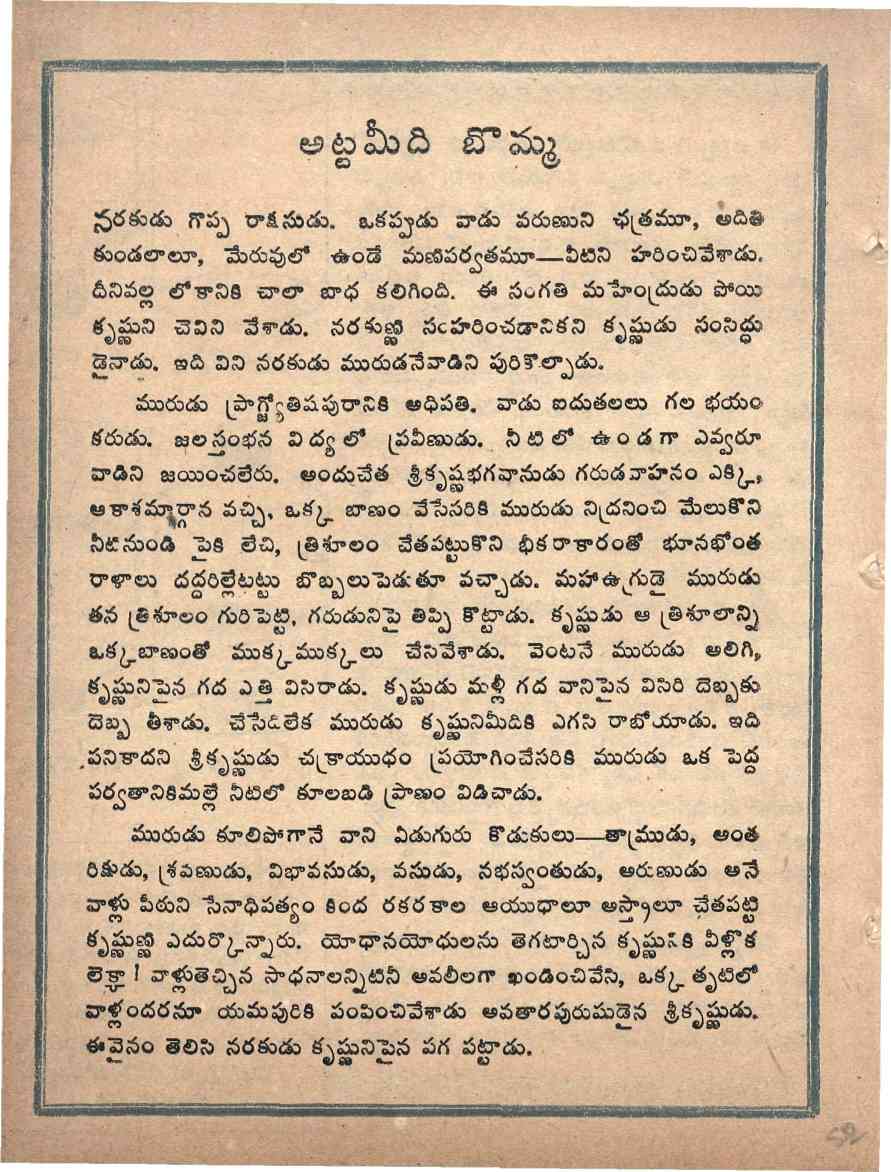 అట్టమీది బొమ్మ
నరకుడు గొప్ప రాక్షసుడు. ఒకప్పుడు వాడు వరుణుని ఛత్రమూ, అదితి
కుండలాలూ, మేరువులో ఉండే మణిపర్వతమూ—వీటిని హరించివేశాడు.
దీనివల్ల లోకానికి చాలా బాధ కలిగింది. ఈ సంగతి మహేంద్రుడు పోయి
కృష్ణుని చెవిని వేశాడు. నరకుణ్ణి సంహరించడానికని కృష్ణుడు సంసిద్ధు
డైనాడు. ఇది విని నరకుడు మురుడనేవాడిని పురికొల్పాడు.
మురుడు ప్రాగ్జ్యోతిషపురానికి అధిపతి. వాడు ఐదుతలలు గల భయం
కరుడు. జలస్తంభన విద్యలో ప్రవీణుడు. నీటిలో ఉండగా ఎవ్వరూ
వాడిని జయించలేరు. అందుచేత శ్రీకృష్ణభగవానుడు గరుడవాహనం ఎక్కి,
ఆకాశమార్గాన వచ్చి, ఒక్క బాణం వేసేసరికి మురుడు నిద్రనించి మేలుకొని
నీటినుండి పైకి లేచి, త్రిశూలం చేతపట్టుకొని భీకరాకారంతో భూనభోంత
రాళాలు దద్దరిల్లేటట్టు బొబ్బలుపెడుతూ వచ్చాడు. మహాఉగ్రుడై మురుడు
తన త్రిశూలం గురిపెట్టి, గరుడునిపై తిప్పి కొట్టాడు. కృష్ణుడు ఆ త్రిశూలాన్ని
ఒక్కబాణంతో ముక్కముక్కలు చేసివేశాడు. వెంటనే మురుడు అలిగి,
కృష్ణునిపైన గద ఎత్తి విసిరాడు. కృష్ణుడు మళ్లీ గద వానిపైన విసిరి దెబ్బకు
దెబ్బ తీశాడు. చేసేదిలేక మురుడు కృష్ణునిమీదికి ఎగసి రాబోయాడు. ఇది
పనికాదని శ్రీకృష్ణుడు చక్రాయుధం ప్రయోగించేసరికి మురుడు ఒక పెద్ద
పర్వతానికిమల్లే నీటిలో కూలబడి ప్రాణం విడిచాడు.
మురుడు కూలిపోగానే వాని ఏడుగురు కొడుకులు—తామ్రుడు, అంత
రిక్షుడు, శ్రవణుడు, విభావసుడు, వసుడు, నభస్వంతుడు, అరుణుడు అనే
వాళ్లు పీఠుని సేనాధిపత్యం కింద రకరకాల ఆయుధాలూ అస్త్రాలూ చేతపట్టి
కృష్ణుణ్ణి ఎదుర్కొన్నారు. యోధానయోధులను తెగటార్చిన కృష్ణునికి వీళ్లొక
లెక్కా! వాళ్లుతెచ్చిన సాధనాలన్నిటినీ అవలీలగా ఖండించివేసి, ఒక్క తృటిలో
వాళ్లందరనూ యమపురికి పంపించివేశాడు అవతారపురుషుడైన శ్రీకృష్ణుడు.
ఈవైనం తెలిసి నరకుడు కృష్ణునిపైన పగ పట్టాడు.